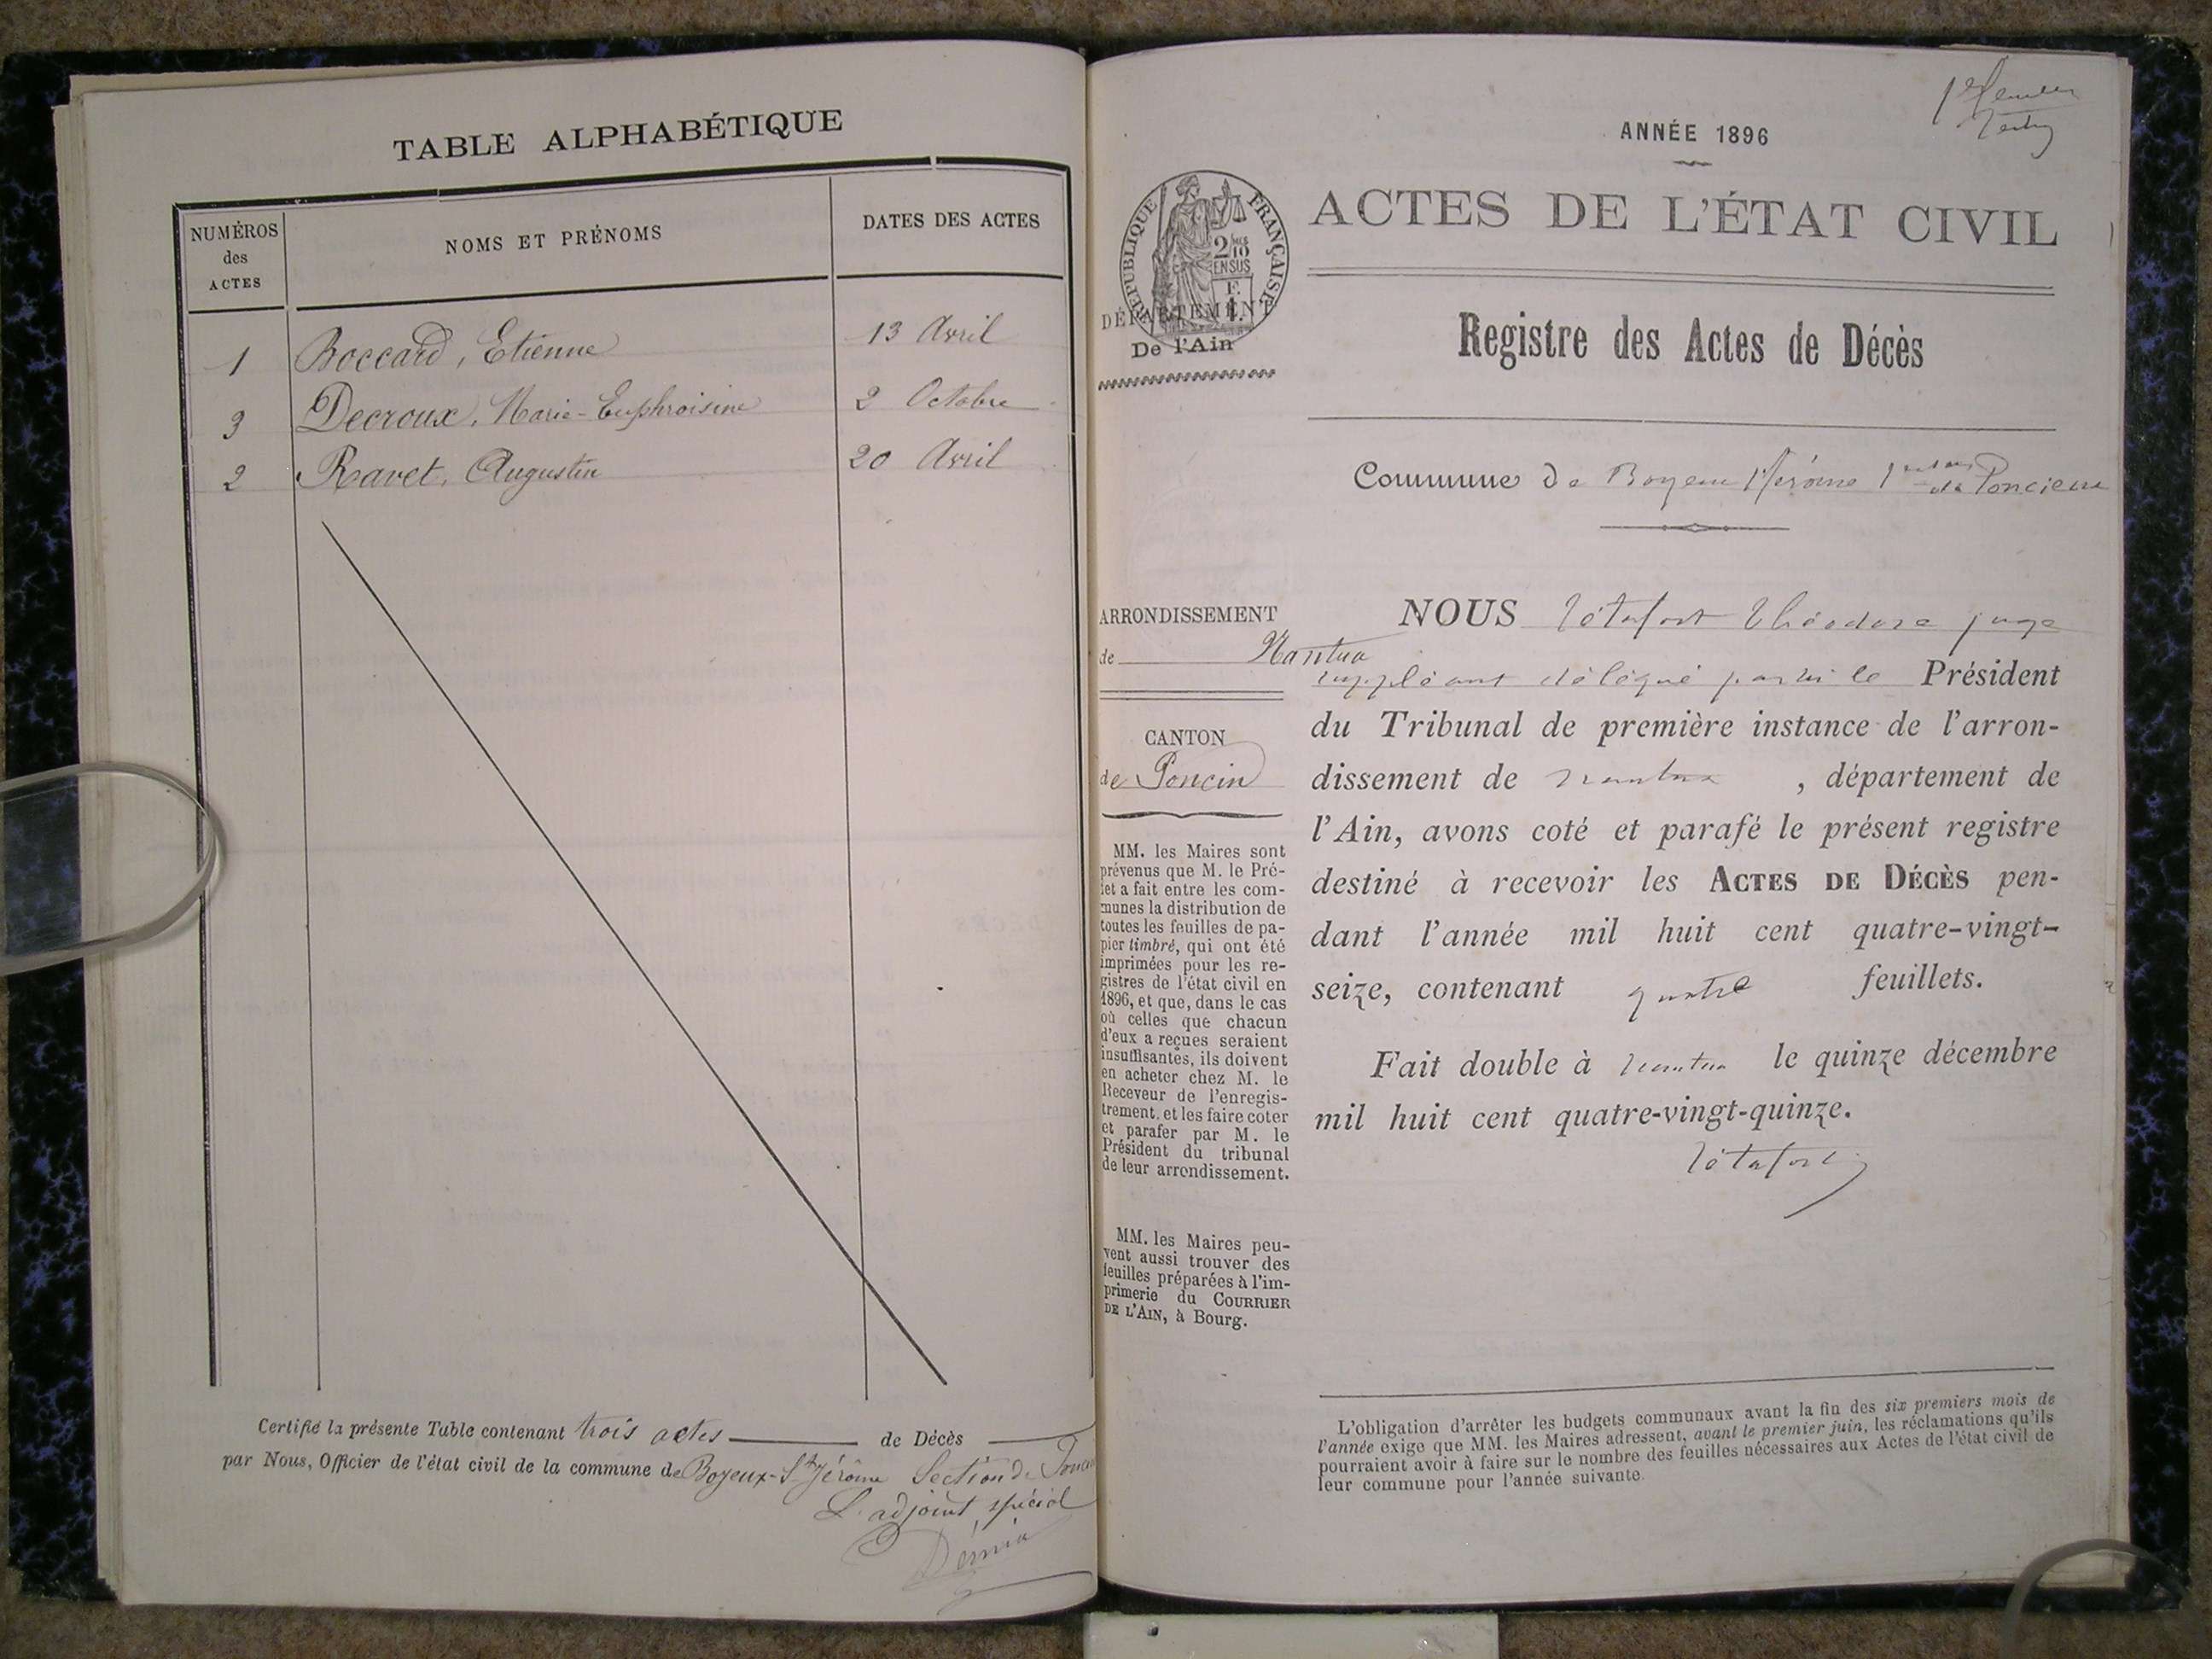 TABLE ALPHABÉTIQUE
NUMÉROS des ACTES
NOMS ET PRÉNOMS
DATES DES ACTES
1 Boccard, Etienne 13 Avril
3 Decroux, Marie-Euphroisine 2 Octobre
2 Ravet, Augustin 20 Avril
Certifié la présente Table contenant trois actes de Décès
par Nous, Officier de l'état civil de la commune de Boyeux-St Jérôme Section de
L'adjoint spécial
ANNÉE 1896
ACTES DE L'ÉTAT CIVIL
RÉPUBLIQUE FRANÇAISE
DÉPARTEMENT
De l'Ain
Registre des Actes de Décès
Commune de Boyeux St Jérôme de Poncieux
ARRONDISSEMENT
de Nantua
CANTON
de Poncin
MM. les Maires sont
prévenus que M. le Pré-
fet a fait entre les com-
munes la distribution de
toutes les feuilles de pa-
pier timbré, qui ont été
imprimées pour les re-
gistres de l'état civil en
1896, et que, dans le cas
où celles que chacun
d'eux a reçues seraient
insuffisantes, ils doivent
en acheter chez M. le
Receveur de l'enregis-
trement, et les faire coter
et parafer par M. le
Président du tribunal
de leur arrondissement.
MM. les Maires peu-
vent aussi trouver des
feuilles préparées à l'im-
primerie du COURRIER
DE L'AIN, à Bourg.
NOUS Tétafort Théodore juge
suppléant délégué par le Président
du Tribunal de première instance de l'arron-
dissement de nantua, département de
l'Ain, avons coté et parafé le présent registre
destiné à recevoir les ACTES DE DÉCÈS pen-
dant l'année mil huit cent quatre-vingt-
seize, contenant quatre feuillets.
Fait double à nantua le quinze décembre
mil huit cent quatre-vingt-quinze.
Tétafort
L'obligation d'arrêter les budgets communaux avant la fin des six premiers mois de
l'année exige que MM. les Maires adressent, avant le premier juin, les réclamations qu'ils
pourraient avoir à faire sur le nombre des feuilles nécessaires aux Actes de l'état civil de
leur commune pour l'année suivante.